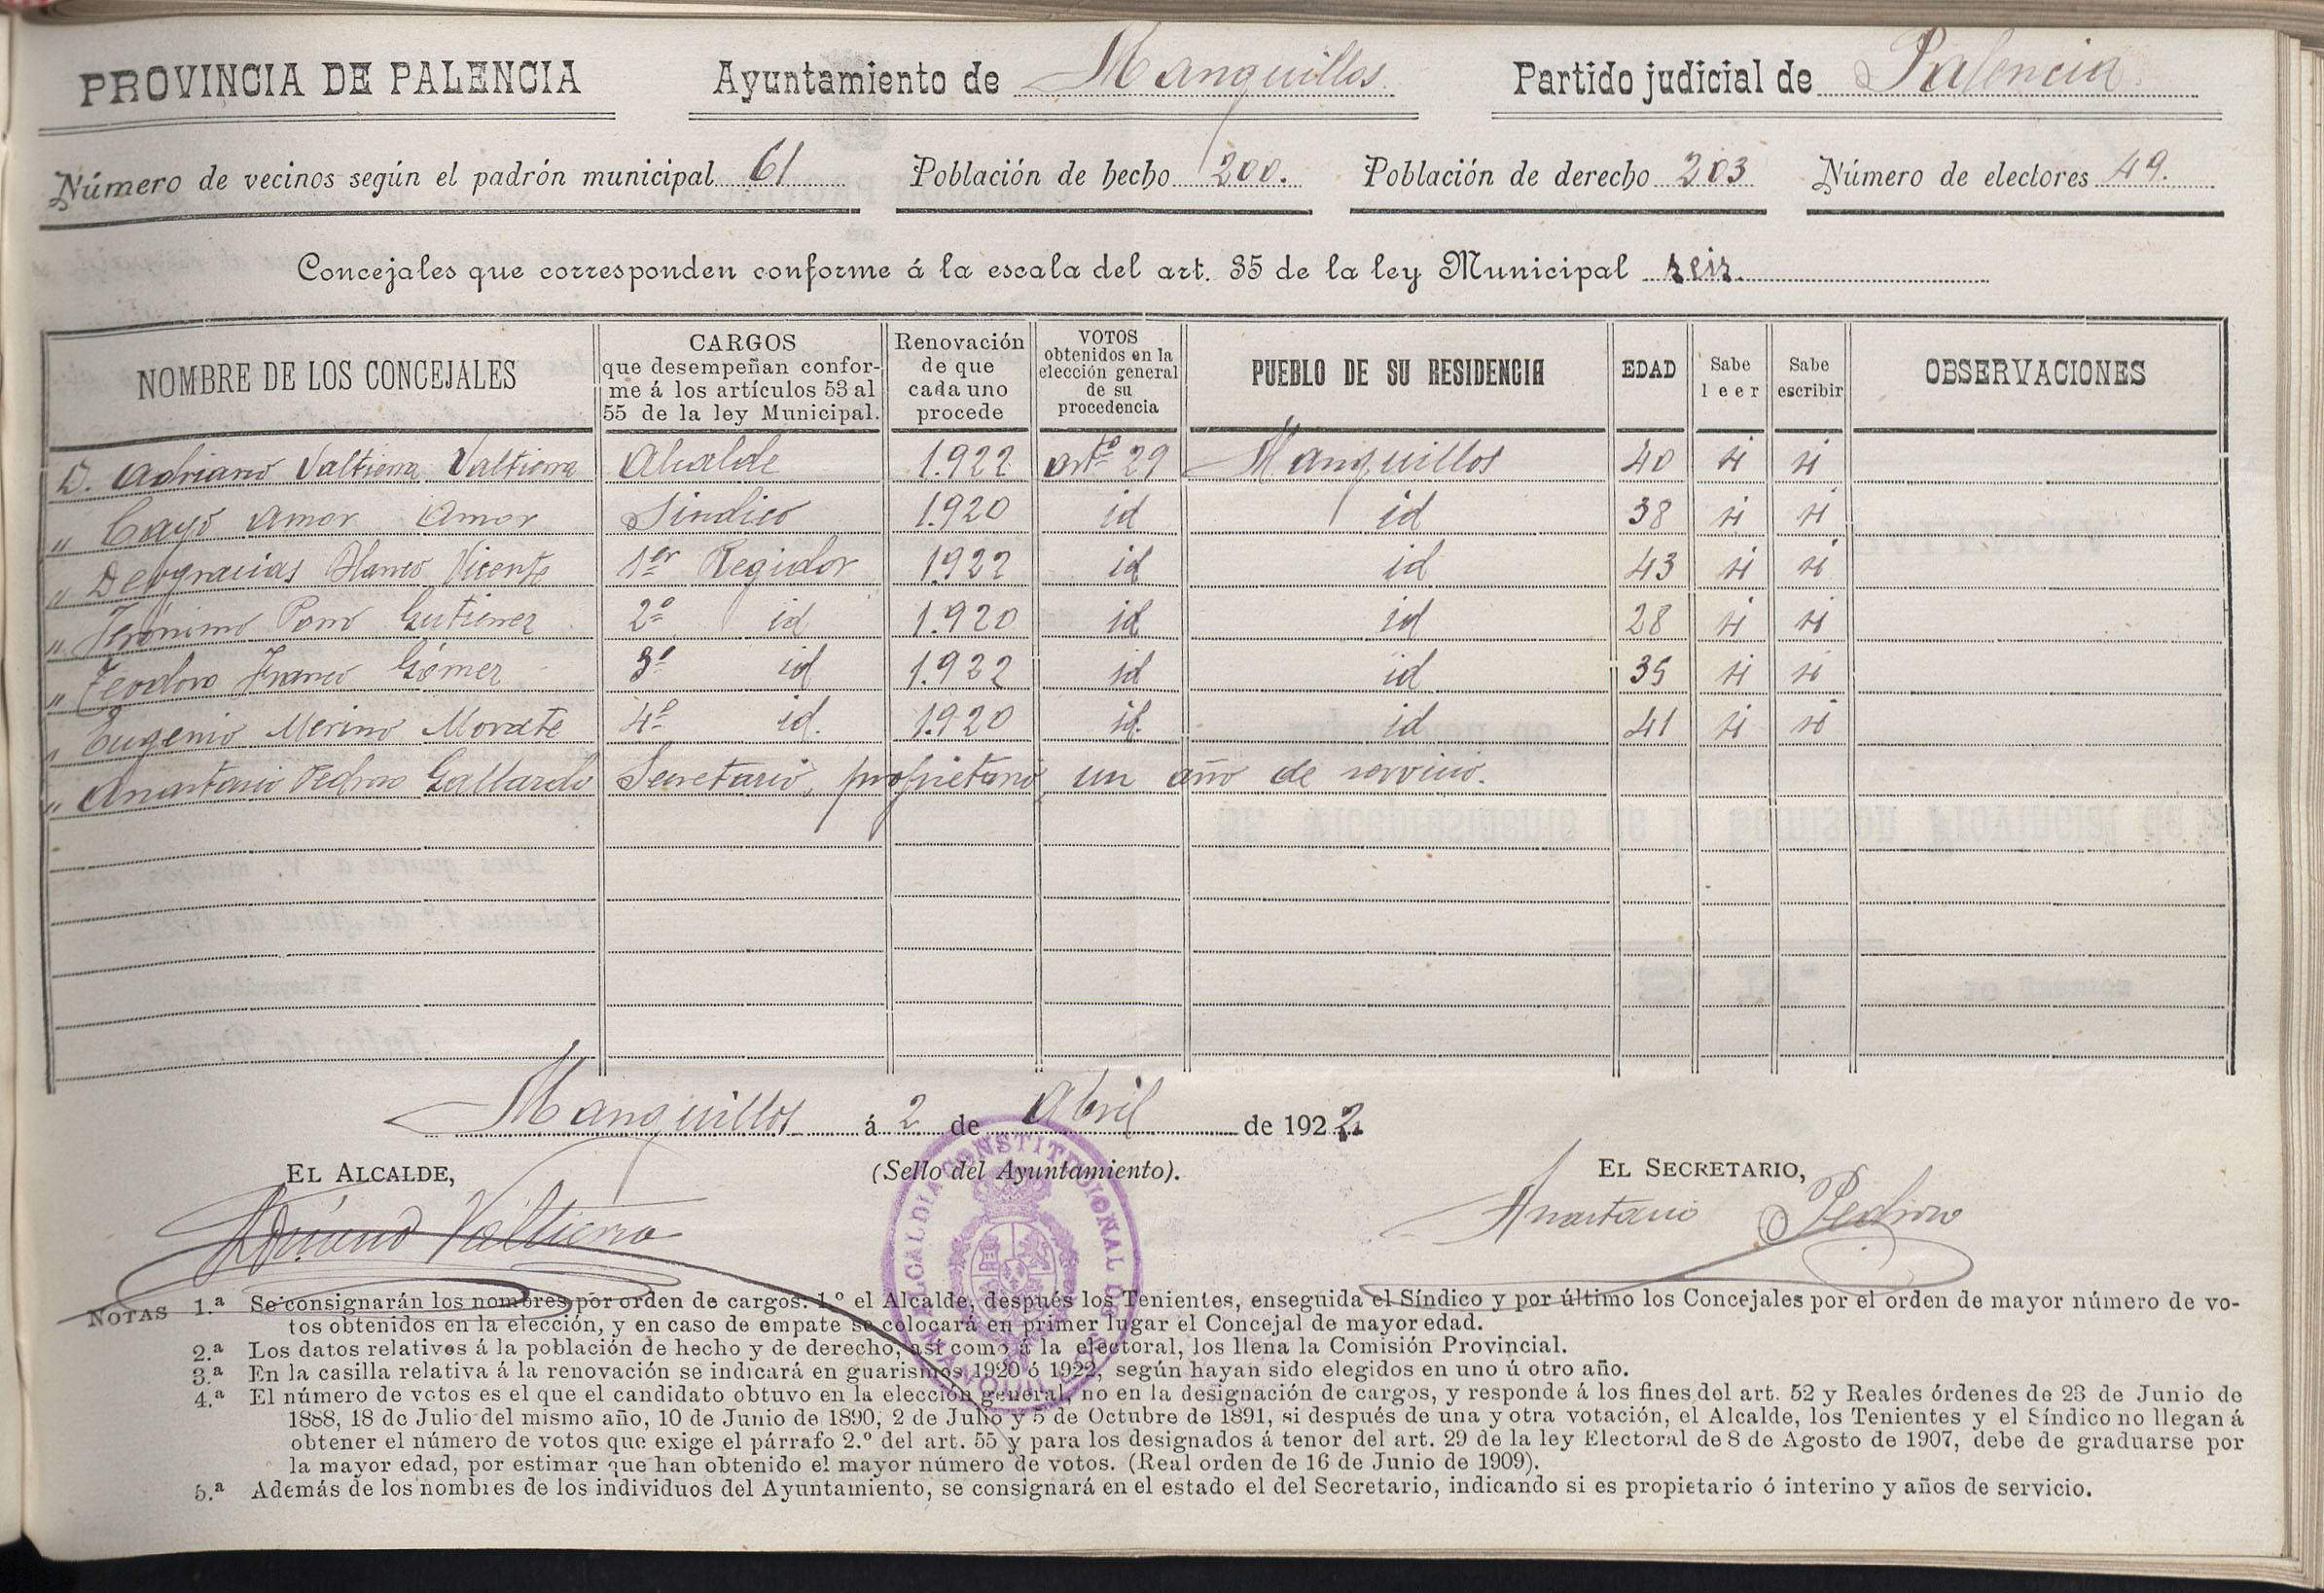 PROVINCIA DE PALENCIA Ayuntamiento de Manquillos. Partido judicial de Palencia.
Número de vecinos según el padrón municipal 61 Población de hecho 200. Población de derecho 203 Número de electores 49.
Concejales que corresponden conforme á la escala del art. 35 de la ley Municipal seis.
NOMBRE DE LOS CONCEJALES CARGOS que desempeñan confor- me á los artículos 53 al 55 de la ley Municipal. Renovación de que cada uno procede VOTOS obtenidos en la elección general de su procedencia PUEBLO DE SU RESIDENCIA EDAD Sabe leer Sabe escribir OBSERVACIONES
D. Adriano Valtierra Valtierra Alcalde 1.922 artº 29 Manquillos 40 si si
" Cayo Amor Amor Sindico 1.920 id id 38 si si
" Deogracias Blanco Vicente 1er Regidor 1922 id id 43 si si
" Jeronimo Gutierrez 2º id 1.920 id id 28 si si
" Teodoro Franco Gómez 3º id 1.922 id id 35 si si
" Eugenio Merino Morate 4º id. 1.920 id. id 41 si si
" Anastasio Pedroso Gallardo Secretario, propietario, un año de servicio.
Manquillos á 2 de Abril de 1922
EL ALCALDE, (Sello del Ayuntamiento). EL SECRETARIO,
Adriano Valtierra Anastasio Pedroso
ALCALDIA CONSTITUCIONAL DE MANQUILLOS
NOTAS 1.ª Se consignarán los nombres por orden de cargos: 1.º el Alcalde, después los Tenientes, enseguida el Síndico y por último los Concejales por el orden de mayor número de vo-
tos obtenidos en la elección, y en caso de empate se colocará en primer lugar el Concejal de mayor edad.
2.ª Los datos relativos á la población de hecho y de derecho, así como á la electoral, los llena la Comisión Provincial.
3.ª En la casilla relativa á la renovación se indicará en guarismos 1920 ó 1922, según hayan sido elegidos en uno ú otro año.
4.ª El número de votos es el que el candidato obtuvo en la elección general, no en la designación de cargos, y responde á los fines del art. 52 y Reales órdenes de 23 de Junio de
1888, 18 de Julio del mismo año, 10 de Junio de 1890, 2 de Julio y 5 de Octubre de 1891, si después de una y otra votación, el Alcalde, los Tenientes y el Síndico no llegan á
obtener el número de votos que exige el párrafo 2.º del art. 55 y para los designados á tenor del art. 29 de la ley Electoral de 8 de Agosto de 1907, debe de graduarse por
la mayor edad, por estimar que han obtenido el mayor número de votos. (Real orden de 16 de Junio de 1909).
5.ª Además de los nombres de los individuos del Ayuntamiento, se consignará en el estado el del Secretario, indicando si es propietario ó interino y años de servicio.